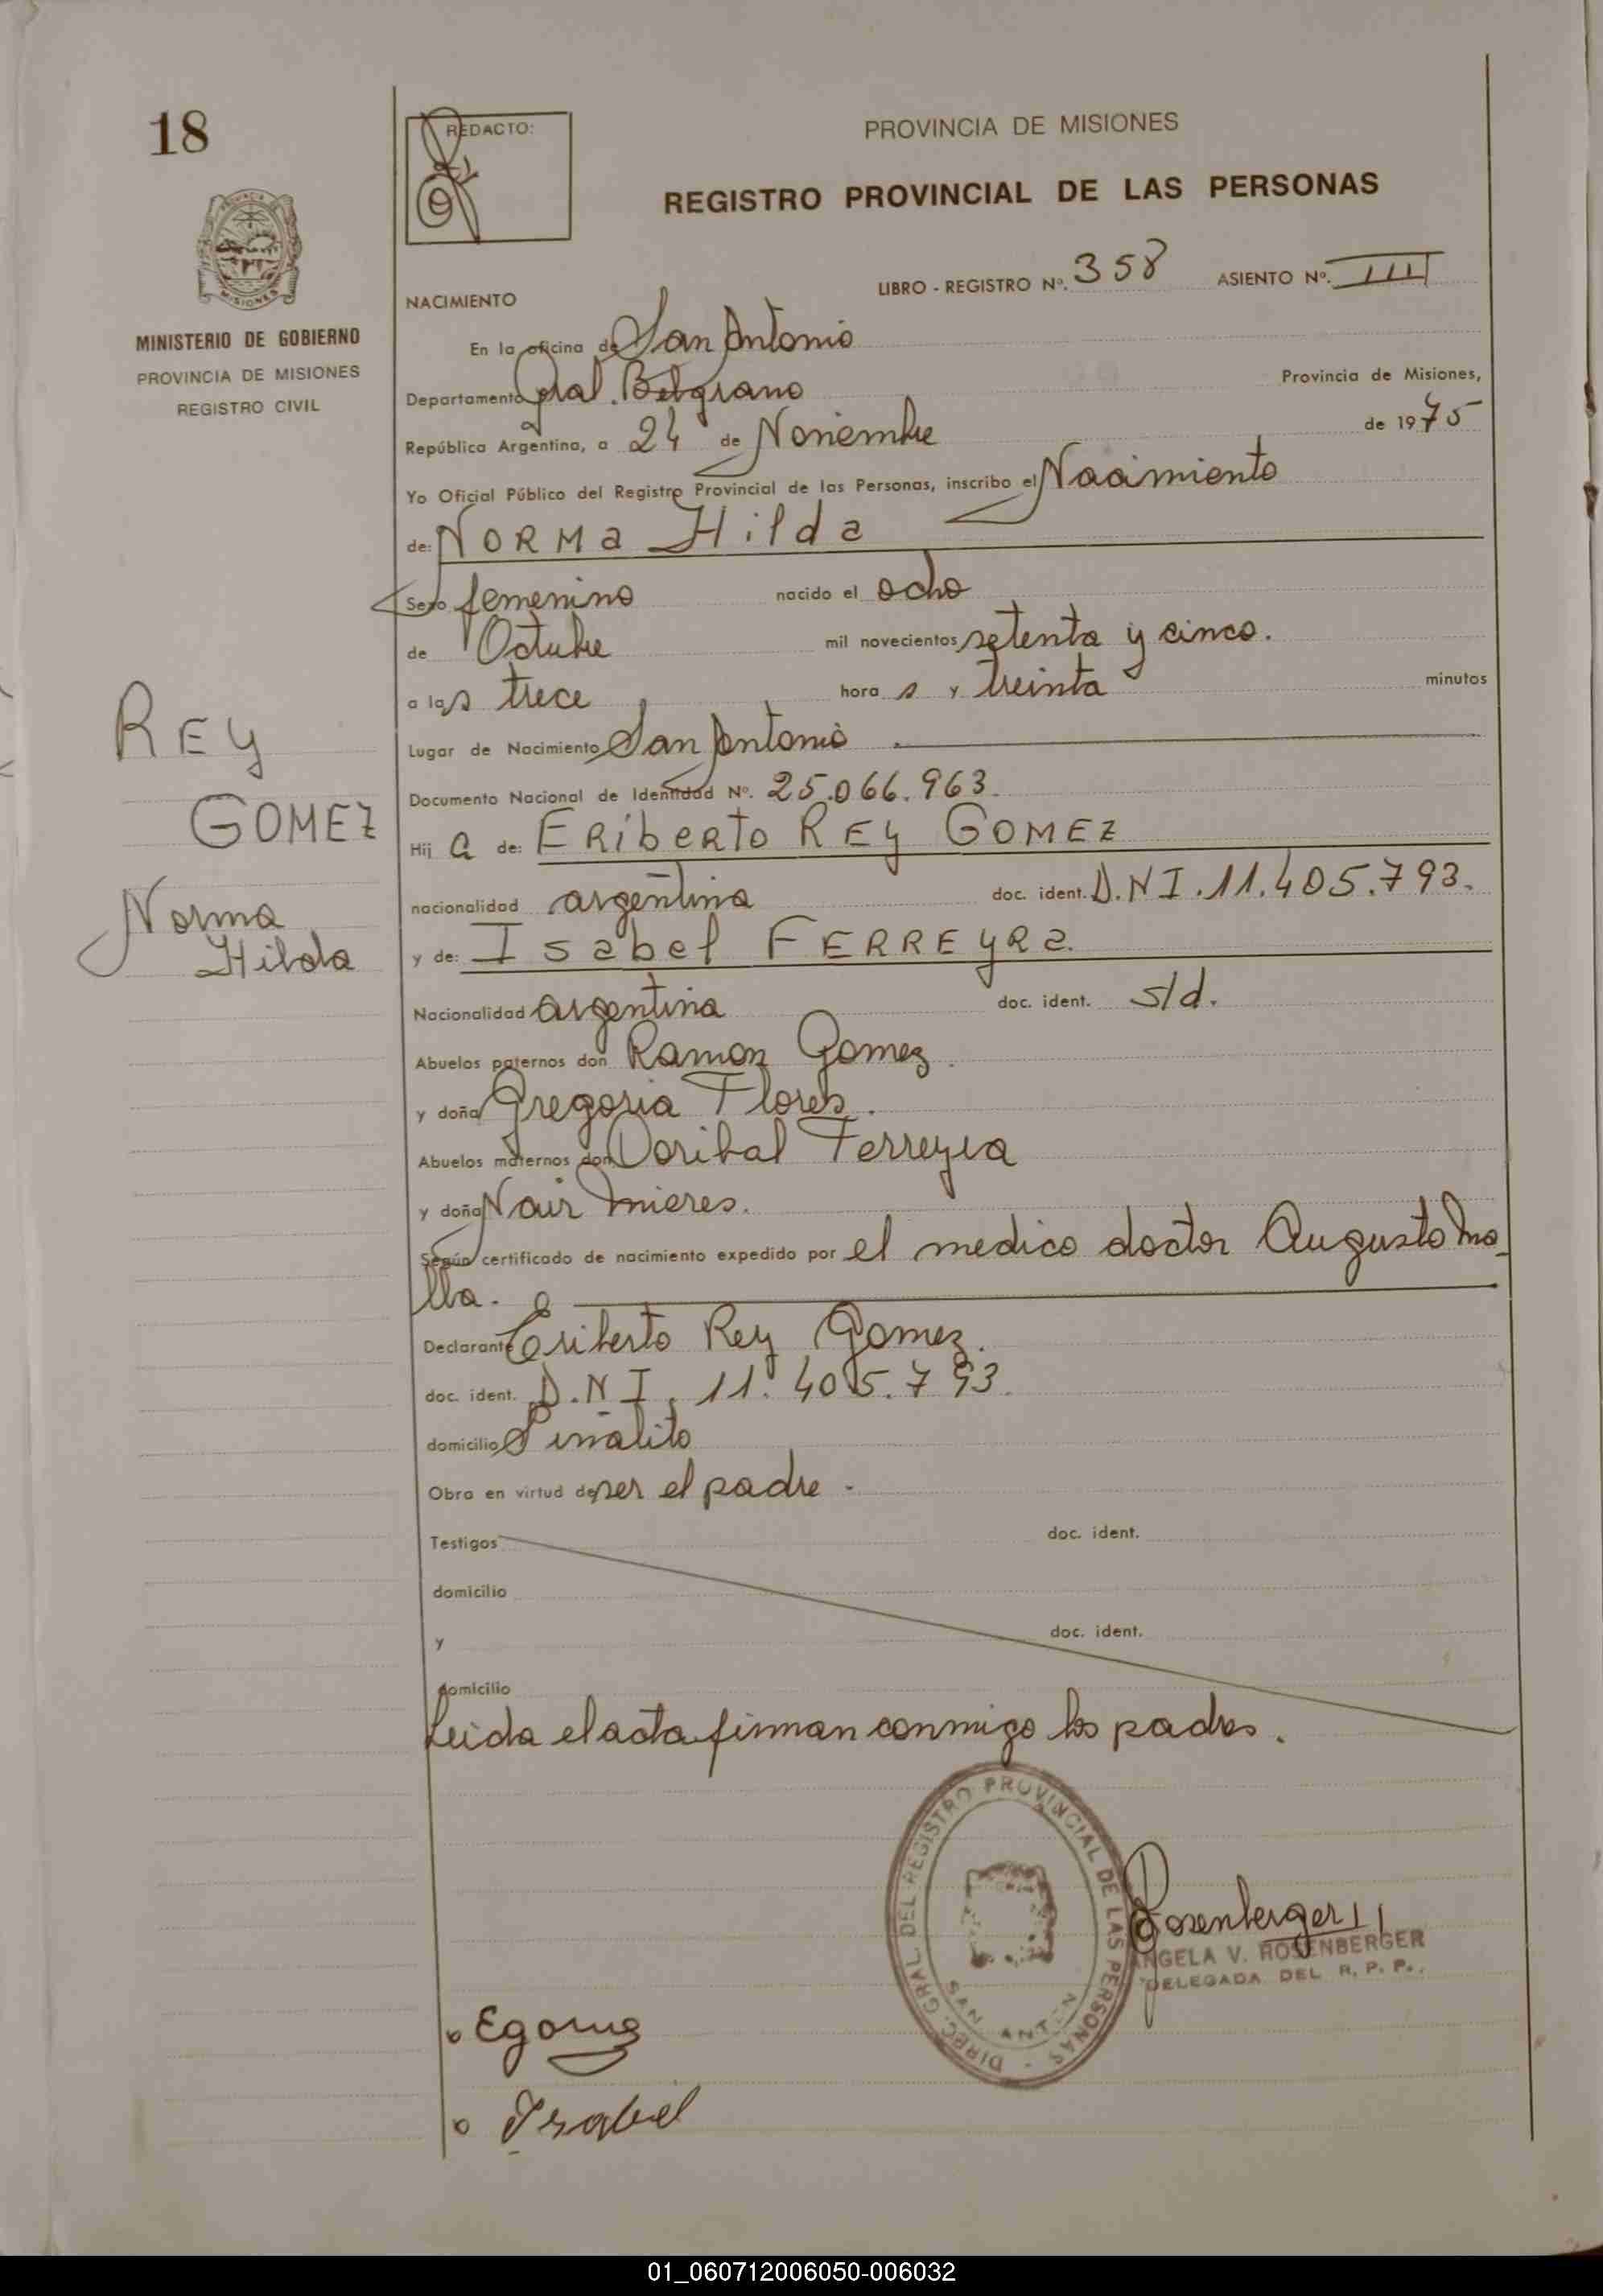 18
REDACTO:
PROVINCIA DE MISIONES
REGISTRO PROVINCIAL DE LAS PERSONAS
LIBRO - REGISTRO Nº. 358 ASIENTO Nº. IIII
MINISTERIO DE GOBIERNO
PROVINCIA DE MISIONES
REGISTRO CIVIL
NACIMIENTO
En la oficina de San Antonio
Departamento Gral. Belgrano Provincia de Misiones,
República Argentina, a 24 de Noviembre de 1975
Yo Oficial Público del Registro Provincial de las Personas, inscribo el Nacimiento
de: NORMa Hilda
Sexo femenino nacido el ocho
de Octubre mil novecientos setenta y cinco.
a las trece hora s y treinta minutos
Lugar de Nacimiento San Antonio
Documento Nacional de Identidad Nº. 25.066.963.
REY
GOMEZ
Norma
Hilda
Hij a de: ERibeRto REY GOMEZ
nacionalidad argentina doc. ident. D.N I. 11.405.793.
y de: Isabel FERREYRa.
Nacionalidad argentina doc. ident. s/d.
Abuelos paternos don Ramon Gomez.
y doña Gregoria Flores.
Abuelos maternos don Doribal Ferreyra
y doña Nair Mieres.
Según certificado de nacimiento expedido por el medico doctor Augusto Mo
lla.
Declarante Eriberto Rey Gomez.
doc. ident. D.N I. 11.405.793.
domicilio Piñalito
Obra en virtud de ser el padre.
Testigos doc. ident.
domicilio
y doc. ident.
domicilio
Leida el acta firman conmigo los padres.
DIREC. GRAL DEL REGISTRO PROVINCIAL DE LAS PERSONAS -
SAN ANTON
Rosenberger
ANGELA V. ROSENBERGER
DELEGADA DEL R. P. P.
Isabel
01_060712006050-006032